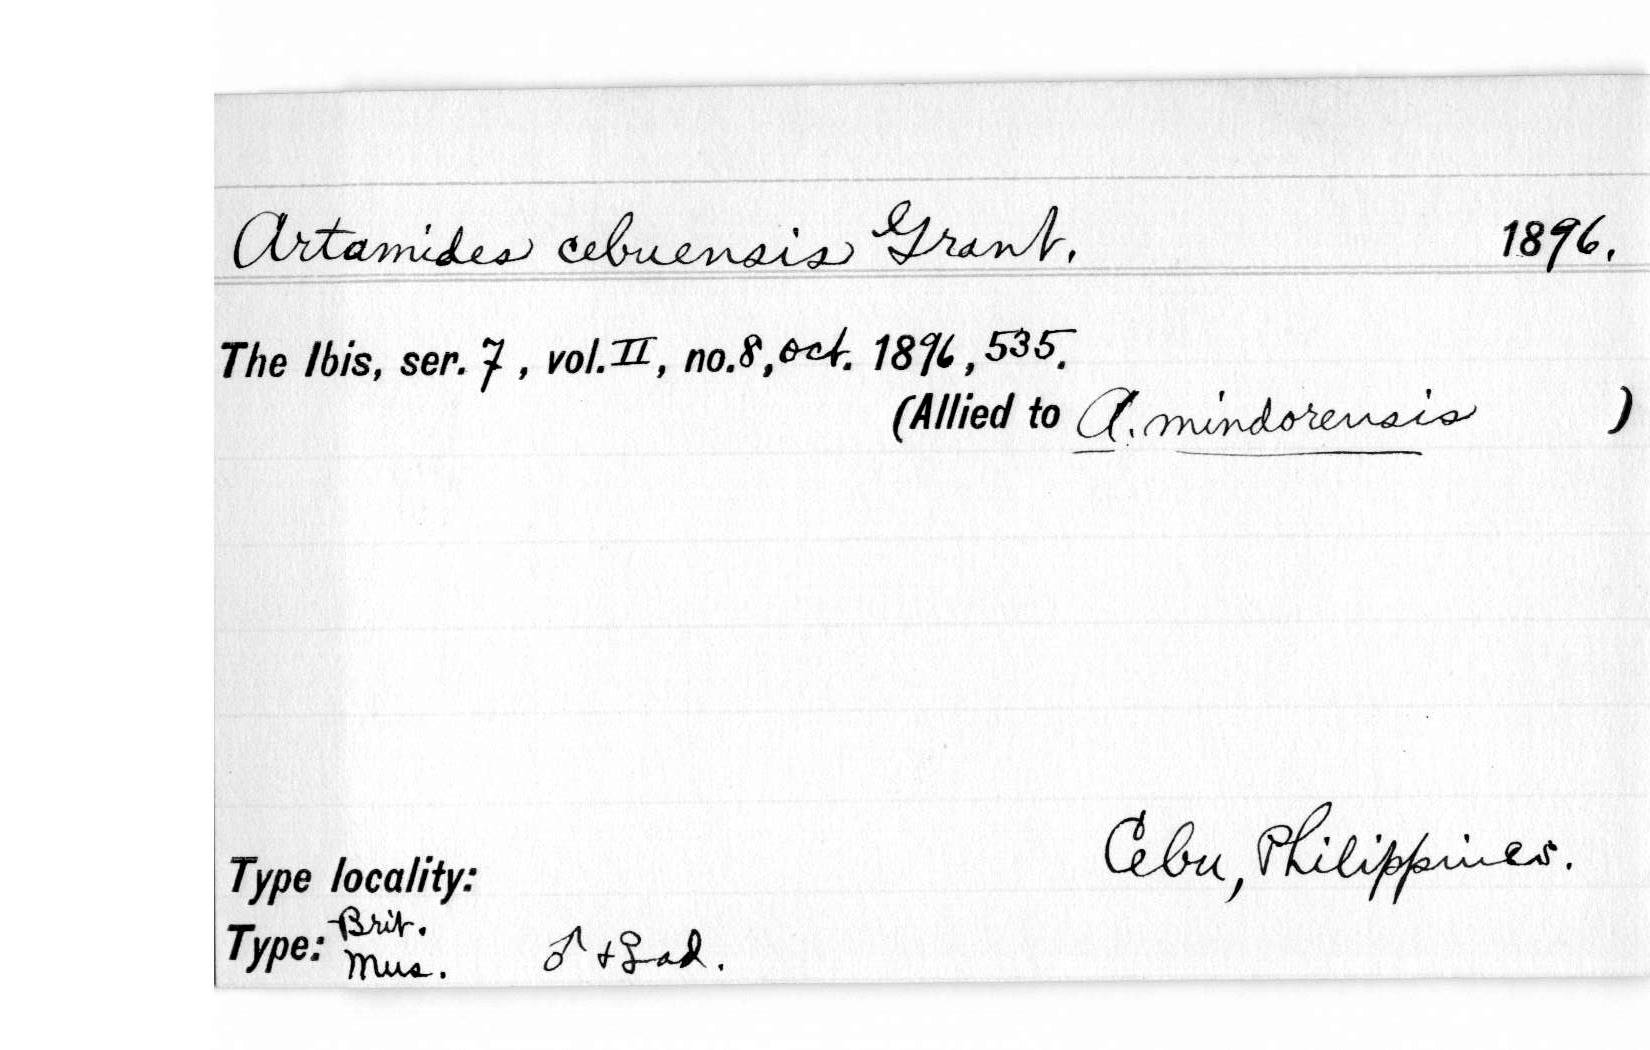 Artamides cebuensis Grant. 1896.
The Ibis, ser. 7, vol. II, no. 8, oct. 1896, 535.
(Allied to A. mindorensis )
Cebu, Philippines.
Type locality:
Type: Brit. Mus. ♂ + ♀ ad.